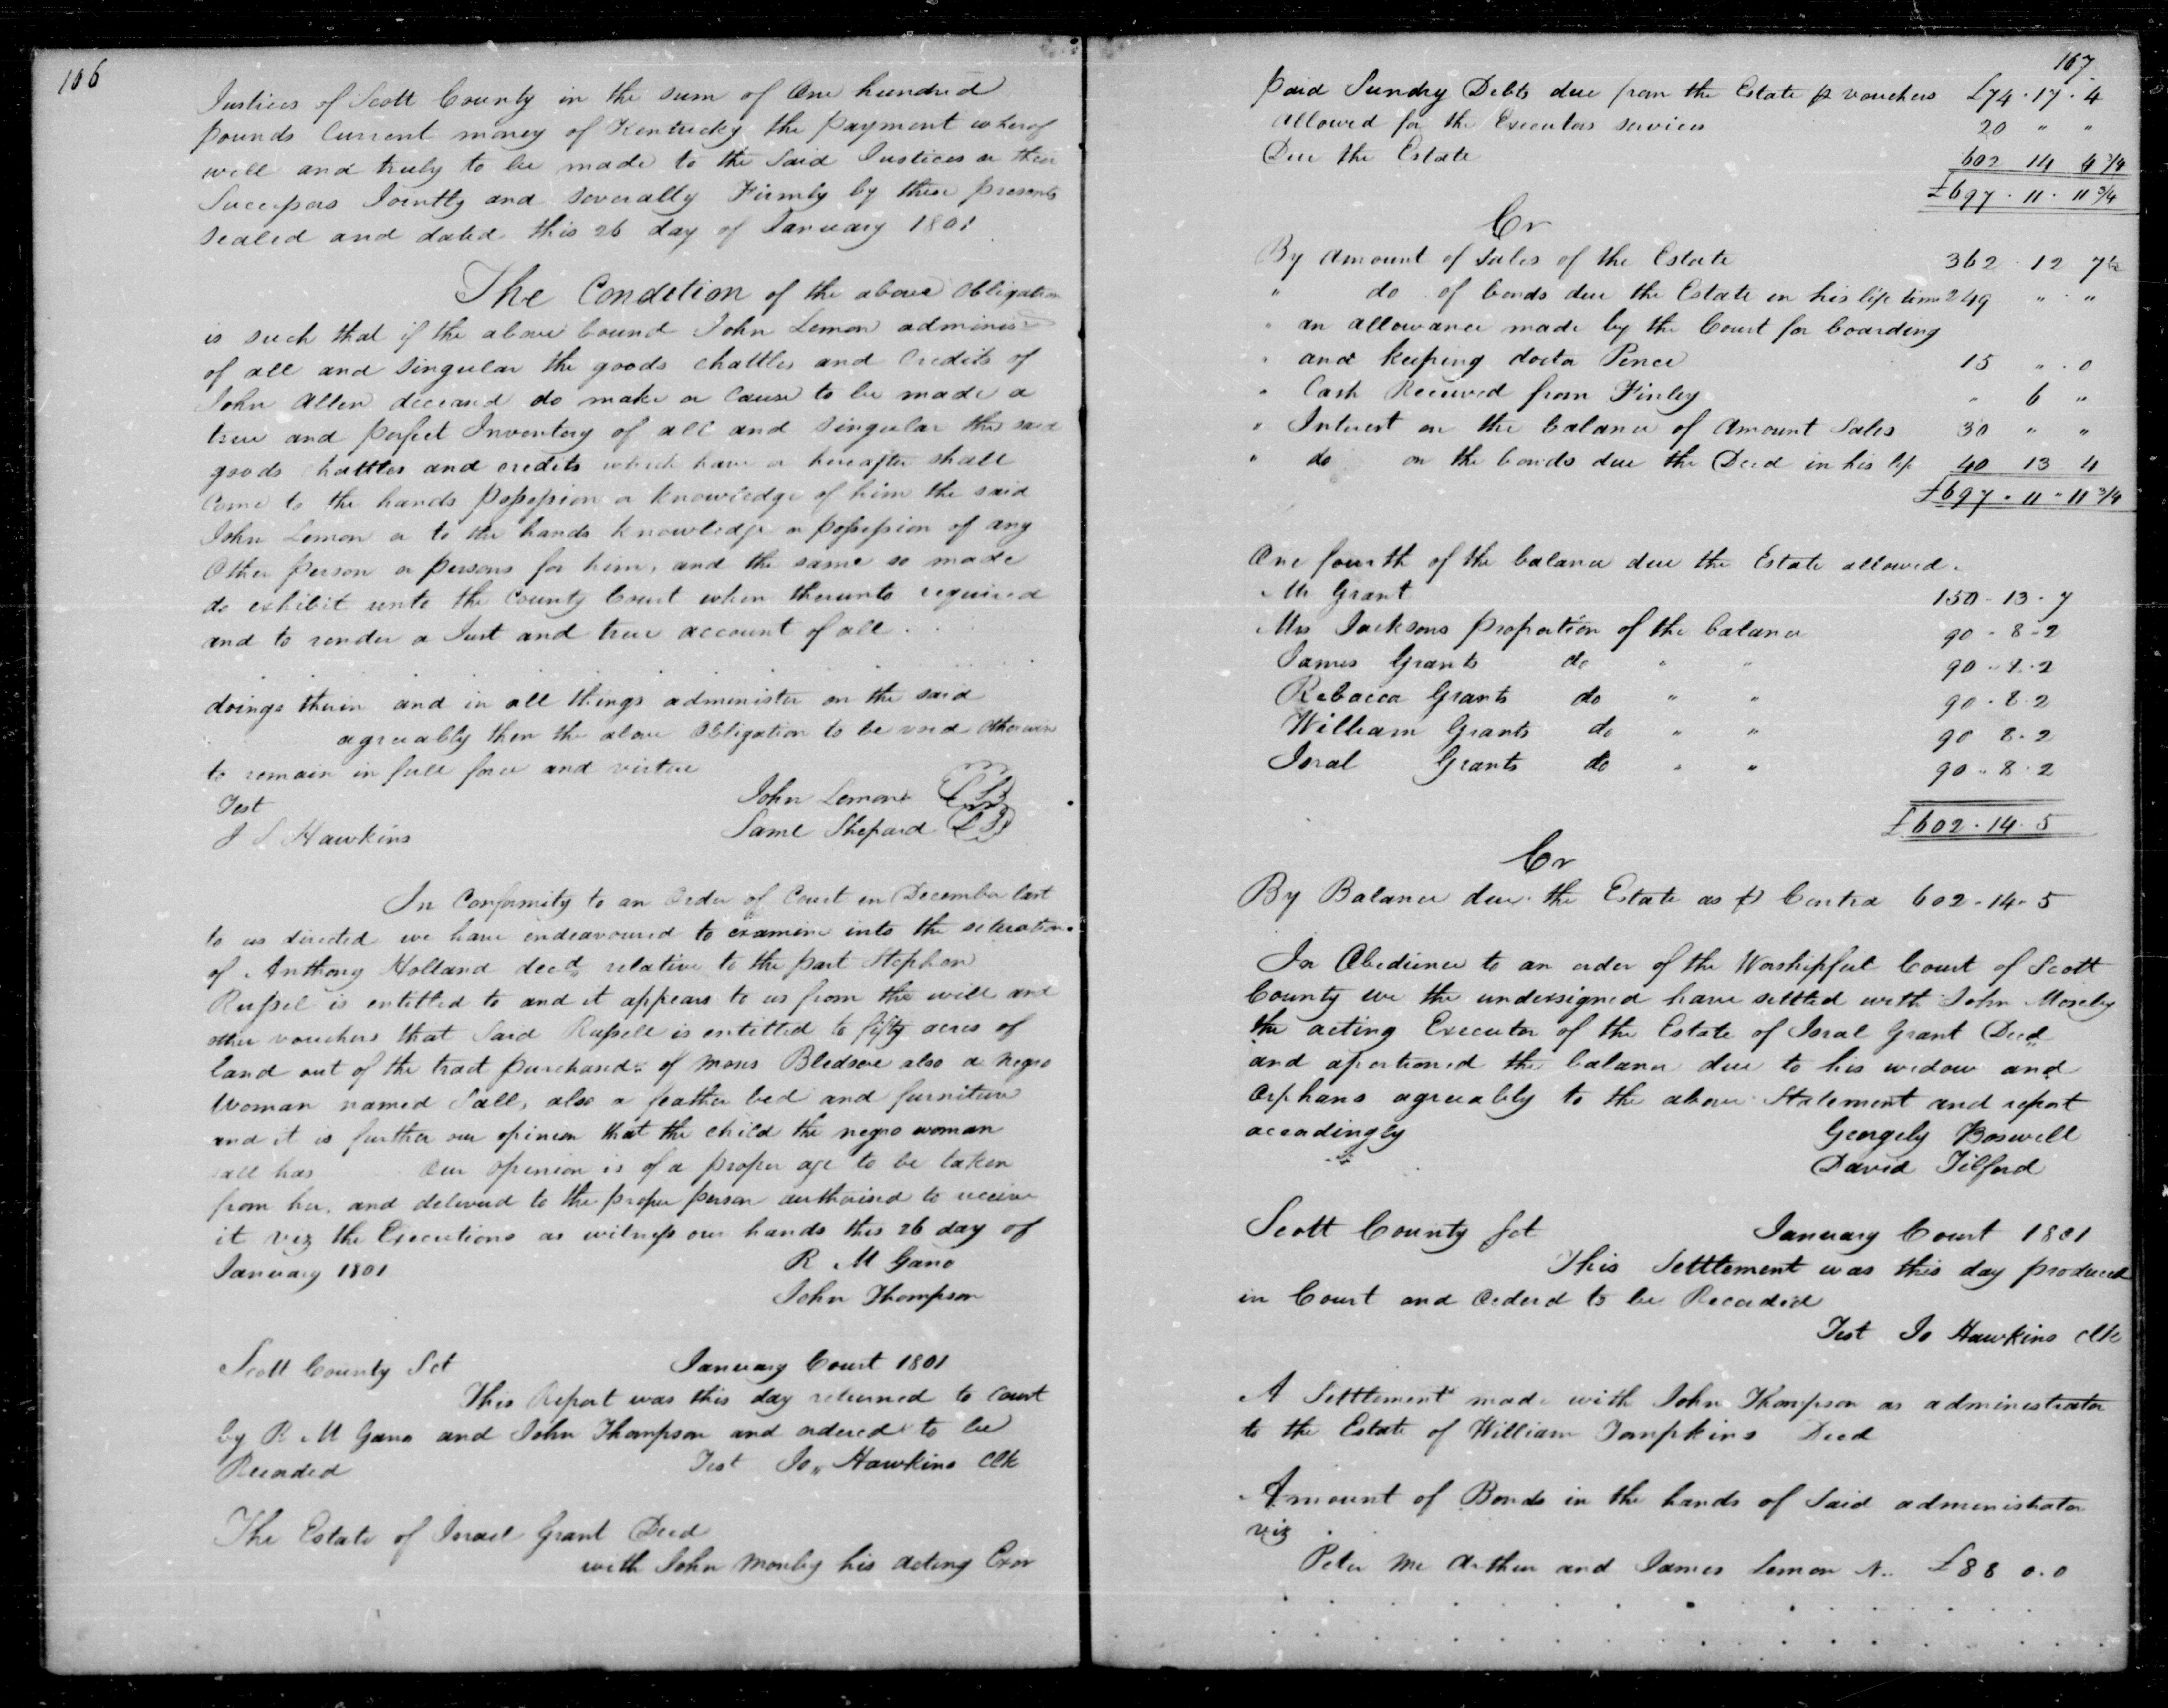 166
Justices of Scott County in the sum of One hundred
pounds Current money of Kentucky the payment wherof
will and truly to be made to the Said Justices or their
Successors Jointly and Severally Firmly by these presents
Sealed and dated this 26 day of January 1801
The Condition of the above Obligation
is such that if the above bound John Lemon adminis
of all and Singular the goods chattles and Credits of
John Allen deceased do make or Cause to be made a
true and perfect Inventory of all and Singular the said
goods chattles and credits which have or hereafter shall
Come to the hands possession or knowledge of him the said
John Lemon or to the hands knowledge or possession of any
Other person or persons for him, and the same so made
do exhibit unto the County Court when therunto required
and to render a Just and true account of all . . .
doings therin and in all things administer on the said
agreeably then the above Obligation to be void Otherwise
to remain in full force and virtue
Test John Lemon LS
J S Hawkins Saml Shepard LS
In Conformity to an Order of Court in December last
to us directed we have endeavoured to examine into the situation
of Anthony Holland decd relative to the part Stephen
Russel is entitled to and it appears to us from the will and
other vouchers that Said Russell is entitled to fifty acres of
land out of the tract purchasd of Moses Bledsoe also a negro
Woman named Sall, also a feather bed and furniture
and it is further our opinion that the child the negro woman
all has Our opinion is of a proper age to be taken
from her, and deliverd to the proper person authorised to receive
it viz the Executions as witness our hands this 26 day of
January 1801 R M Gano
John Thompson
Scott County Sct January Court 1801
This Report was this day returned to Court
by R M Gano and John Thompson and ordered to be
Recorded Test Jo,, Hawkins Clk
The Estate of Israel Grant Decd
with John Mosby his acting Exor
167
paid Sundry Debts due from the Estate p vouchers £74 . 17 . 4
allowed for the Executors services 20 " "
Due the Estate 602 14 6 3/4
£697 . 11 . 11 3/4
Cr
By Amount of Sales of the Estate 362 . 12 7 1/2
" do of bonds due the Estate in his life time 249 " . "
" an allowance made by the Court for boarding
" and keeping doctor Pence 15 " . 0
" Cash Received from Finley " 6 "
" Interest on the balance of Amount Sales 30 " "
" do on the bonds due the Decd in his life 40 13 4
£697 . 11 " 11 3/4
One fourth of the balance due the Estate allowed.
Mr Grant 150 . 13 . 7
Mrs Jacksons proportion of the balance 90 . 8 . 2
James Grants do " " 90 . 8 . 2
Rebacca Grants do " " 90 . 8 . 2
William Grants do " " 90 8 . 2
Isral Grants do " " 90 . 8 . 2
£602 . 14 . 5
Cr
By Balance due the Estate as p Contra 602 . 14 . 5
In Obedience to an order of the Worshipful Court of Scott
County we the undersigned have settled with John Moseby
the acting Executor of the Estate of Isral Grant Decd
and aportioned the balance due to his widow and
Orphans agreeably to the above Statement and report
accordingly Georgely Boswell
David Tilford
Scott County Sct January Court 1801
This Setttement was this day produced
in Court and Orderd to be Recorded
Test Jo Hawkins Clk
A Settlement made with John Thompson as administrator
to the Estate of William Tompkins Decd
Amount of Bonds in the hands of Said administrator
viz
Peter Mc Arthur and James Lemon N.. £88 0 . 0